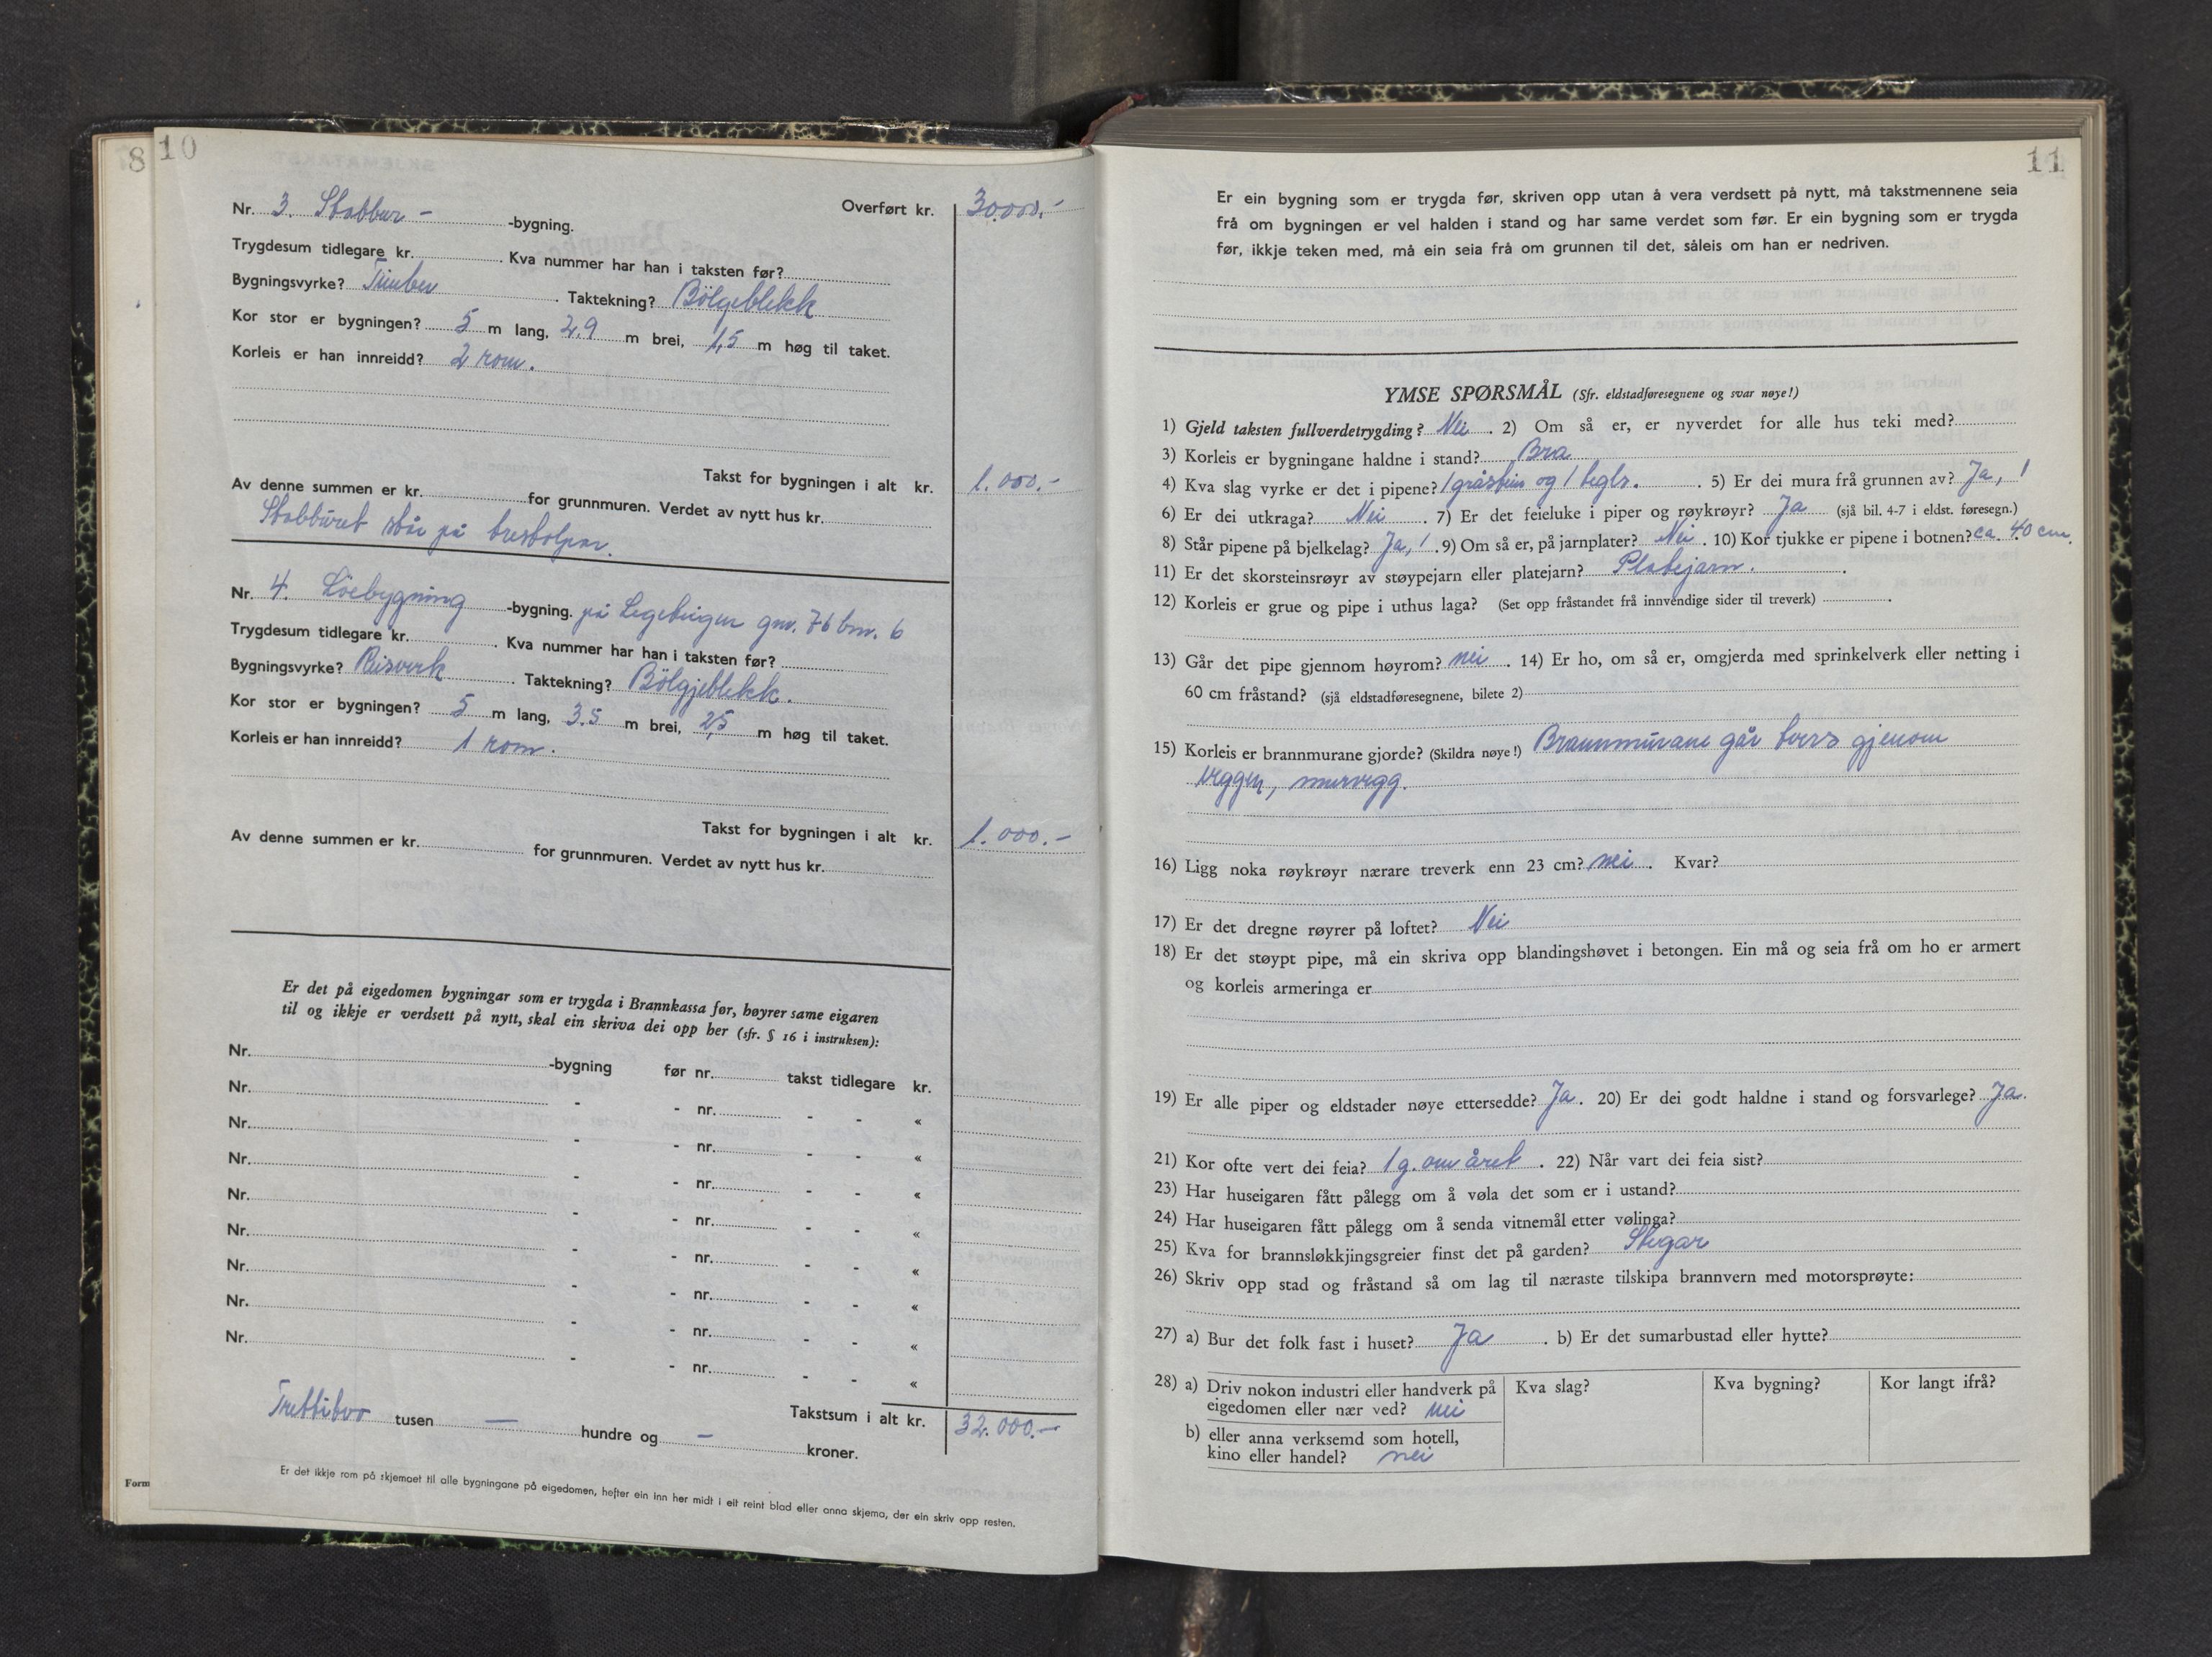 8 10
Nr. 3. Stabbur - -bygning. Overført kr. 30.000.-
Trygdesum tidlegare kr. Kva nummer har han i taksten før?
Bygningsvyrke? Timber. Taktekning? Bölgeblekk
Kor stor er bygningen? 5 m lang, 2.9 m brei, 1,5 m høg til taket.
Korleis er han innreidd? 2 rom.
Takst for bygningen i alt kr. 1.000.-
Av denne summen er kr. for grunnmuren. Verdet av nytt hus kr.
Stabburet står på trestolpar.
Nr. 4. Löebygning -bygning. på gnr. 76 bnr. 6
Trygdesum tidlegare kr. Kva nummer har han i taksten før?
Bygningsvyrke? Reisverk. Taktekning? Bölgjeblekk.
Kor stor er bygningen? 5 m lang, 3.5 m brei, 2,5 m høg til taket.
Korleis er han innreidd? 1 rom.
Takst for bygningen i alt kr. 1.000.-
Av denne summen er kr. for grunnmuren. Verdet av nytt hus kr.
Er det på eigedomen bygningar som er trygda i Brannkassa før, høyrer same eigaren
til og ikkje er verdsett på nytt, skal ein skriva dei opp her (sfr. § 16 i instruksen):
Nr. -bygning før nr. takst tidlegare kr.
Nr. - - nr. - - «
Nr. - - nr. - - «
Nr. - - nr. - - «
Nr. - - nr. - - «
Nr. - - nr. - - «
Nr. - - nr. - - «
Nr. - - nr. - - «
Nr. - - nr. - - «
Takstsum i alt kr. 32.000.-
Trettito tusen — hundre og — kroner.
Er det ikkje rom på skjemaet til alle bygningane på eigedomen, hefter ein inn her midt i eit reint blad eller anna skjema, der ein skriv opp resten.
Form
11
Er ein bygning som er trygda før, skriven opp utan å vera verdsett på nytt, må takstmennene seia
frå om bygningen er vel halden i stand og har same verdet som før. Er ein bygning som er trygda
før, ikkje teken med, må ein seia frå om grunnen til det, såleis om han er nedriven.
YMSE SPØRSMÅL (Sfr. eldstadføresegnene og svar nøye!)
1) Gjeld taksten fullverdetrygding? Nei. 2) Om så er, er nyverdet for alle hus teki med?
3) Korleis er bygningane haldne i stand? Bra
4) Kva slag vyrke er det i pipene? 1 gråstein og 1 tegls. 5) Er dei mura frå grunnen av? Ja, 1
6) Er dei utkraga? Nei. 7) Er det feieluke i piper og røykrøyr? Ja (sjå bil. 4-7 i eldst. føresegn.)
8) Står pipene på bjelkelag? Ja, 1. 9) Om så er, på jarnplater? Nei. 10) Kor tjukke er pipene i botnen? ca. 40 cm.
11) Er det skorsteinsrøyr av støypejarn eller platejarn? Platejarn.
12) Korleis er grue og pipe i uthus laga? (Set opp fråstandet frå innvendige sider til treverk)
13) Går det pipe gjennom høyrom? nei. 14) Er ho, om så er, omgjerda med sprinkelverk eller netting i
60 cm fråstand? (sjå eldstadføresegnene, bilete 2)
15) Korleis er brannmurane gjorde? (Skildra nøye!) Brannmurane går tvers gjenom
veggen, murvegg.
16) Ligg noka røykrøyr nærare treverk enn 23 cm? nei. Kvar?
17) Er det dregne røyrer på loftet? Nei
18) Er det støypt pipe, må ein skriva opp blandingshøvet i betongen. Ein må og seia frå om ho er armert
og korleis armeringa er
19) Er alle piper og eldstader nøye ettersedde? Ja. 20) Er dei godt haldne i stand og forsvarlege? Ja.
21) Kor ofte vert dei feia? 1 g. om året. 22) Når vart dei feia sist?
23) Har huseigaren fått pålegg om å vøla det som er i ustand?
24) Har huseigaren fått pålegg om å senda vitnemål etter vølinga?
25) Kva for brannsløkkjingsgreier finst det på garden? Stegar
26) Skriv opp stad og fråstand så om lag til næraste tilskipa brannvern med motorsprøyte:
27) a) Bur det folk fast i huset? Ja. b) Er det sumarbustad eller hytte?
28) a) Driv nokon industri eller handverk på Kva slag? Kva bygning? Kor langt ifrå?
eigedomen eller nær ved? nei
b) eller anna verksemd som hotell,
kino eller handel? nei